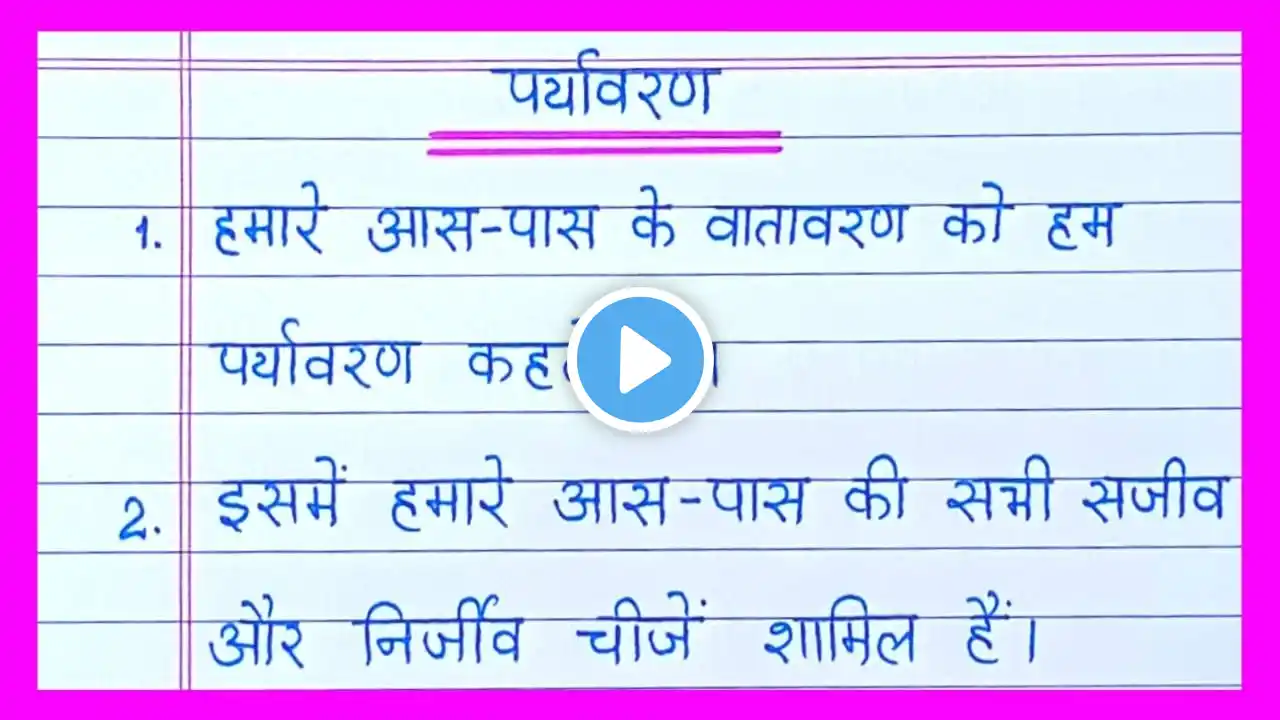 पर्यावरण
1. हमारे आस-पास के वातावरण को हम
पर्यावरण
2. इसमें हमारे आस-पास की सभी सजीव
और निर्जीव चीजें शामिल हैं।